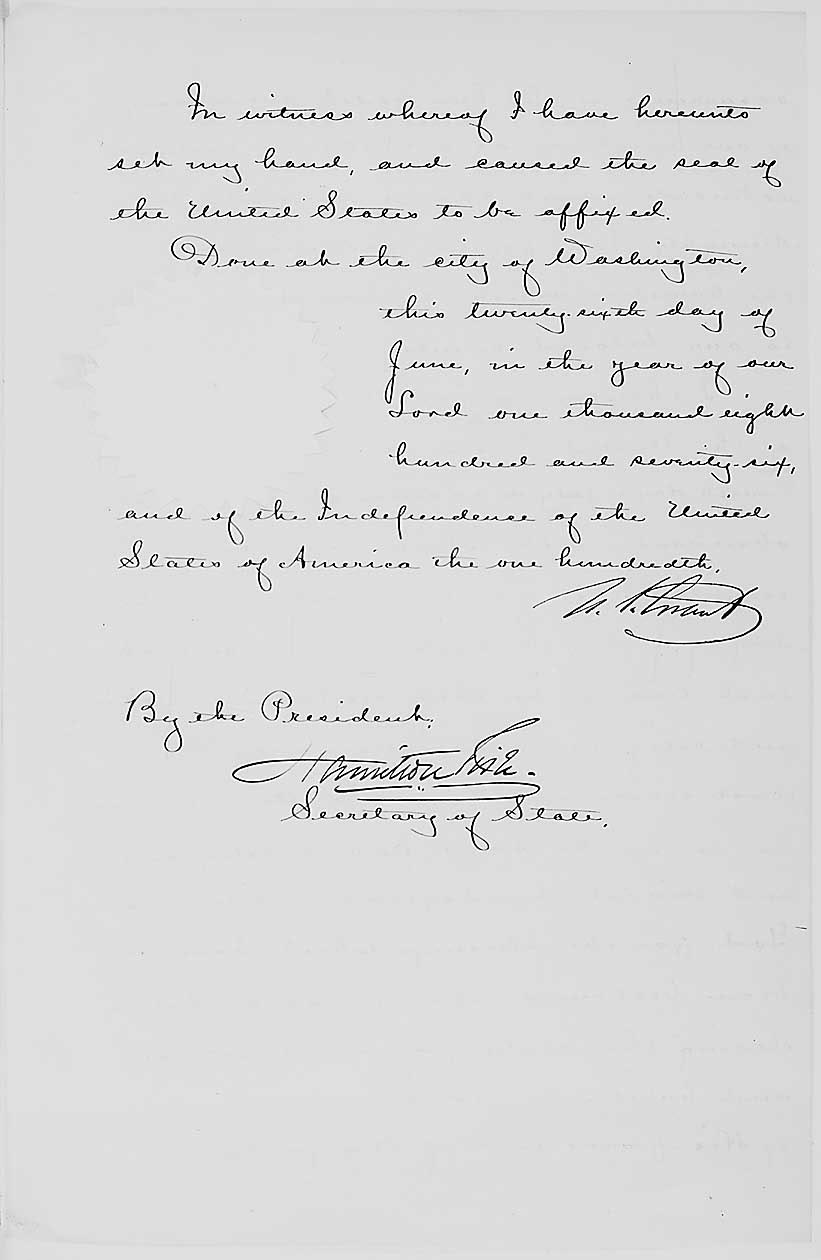 In witness whereof I have hereunto
set my hand, and caused the seal of
the United States to be affixed.
Done at the city of Washington,
this twenty-sixth day of
June, in the year of our
Lord one thousand eight
hundred and seventy-six,
and of the Independence of the United
States of America the one hundredth.
U. S. Grant
By the President:
Hamilton Fish.
Secretary of State.